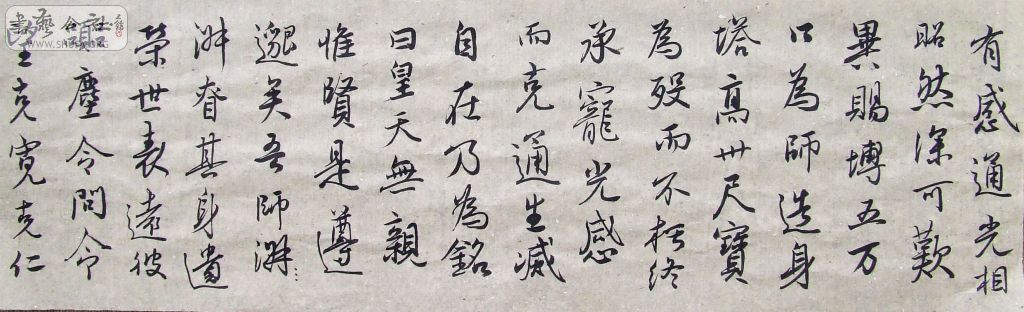 有感通光相
昭然深可歎
異賜塼五万
口為師造身
塔高卅尺寶
為歿而不朽終
承寵光感
而克通生滅
自在乃為銘
曰皇天無親
惟賢是遵
邈矣吾師淑
淑眘其身遺
榮世表遠彼
囂塵令問令
望克寬克仁